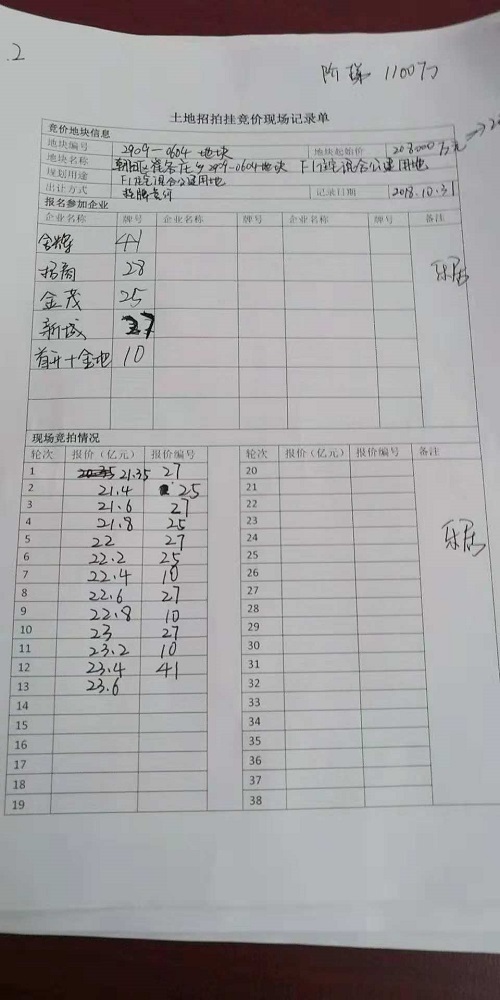 .2
阶梯 1100万
土地招拍挂竞价现场记录单
竞价地块信息
地块编号 2909-0604地块 地块起始价 208000万元
地块名称 朝阳区崔各庄乡2909-0604地块 F1住宅混合公建用地
规划用途 F1住宅混合公建用地
出让方式 挂牌竞价 记录日期 2018.10.31
报名参加企业
企业名称 牌号 企业名称 牌号 企业名称 牌号 备注
金辉 41
招商 28 乐居
金茂 25
新城 27
首开+金地 10
现场竞拍情况
轮次 报价（亿元） 报价编号 轮次 报价（亿元） 报价编号 备注
1 21.35 27 20
2 21.4 25 21
3 21.6 27 22
4 21.8 25 23
5 22 27 24 乐居
6 22.2 25 25
7 22.4 10 26
8 22.6 27 27
9 22.8 10 28
10 23 27 29
11 23.2 10 30
12 23.4 41 31
13 23.6 32
14 33
15 34
16 35
17 36
18 37
19 38